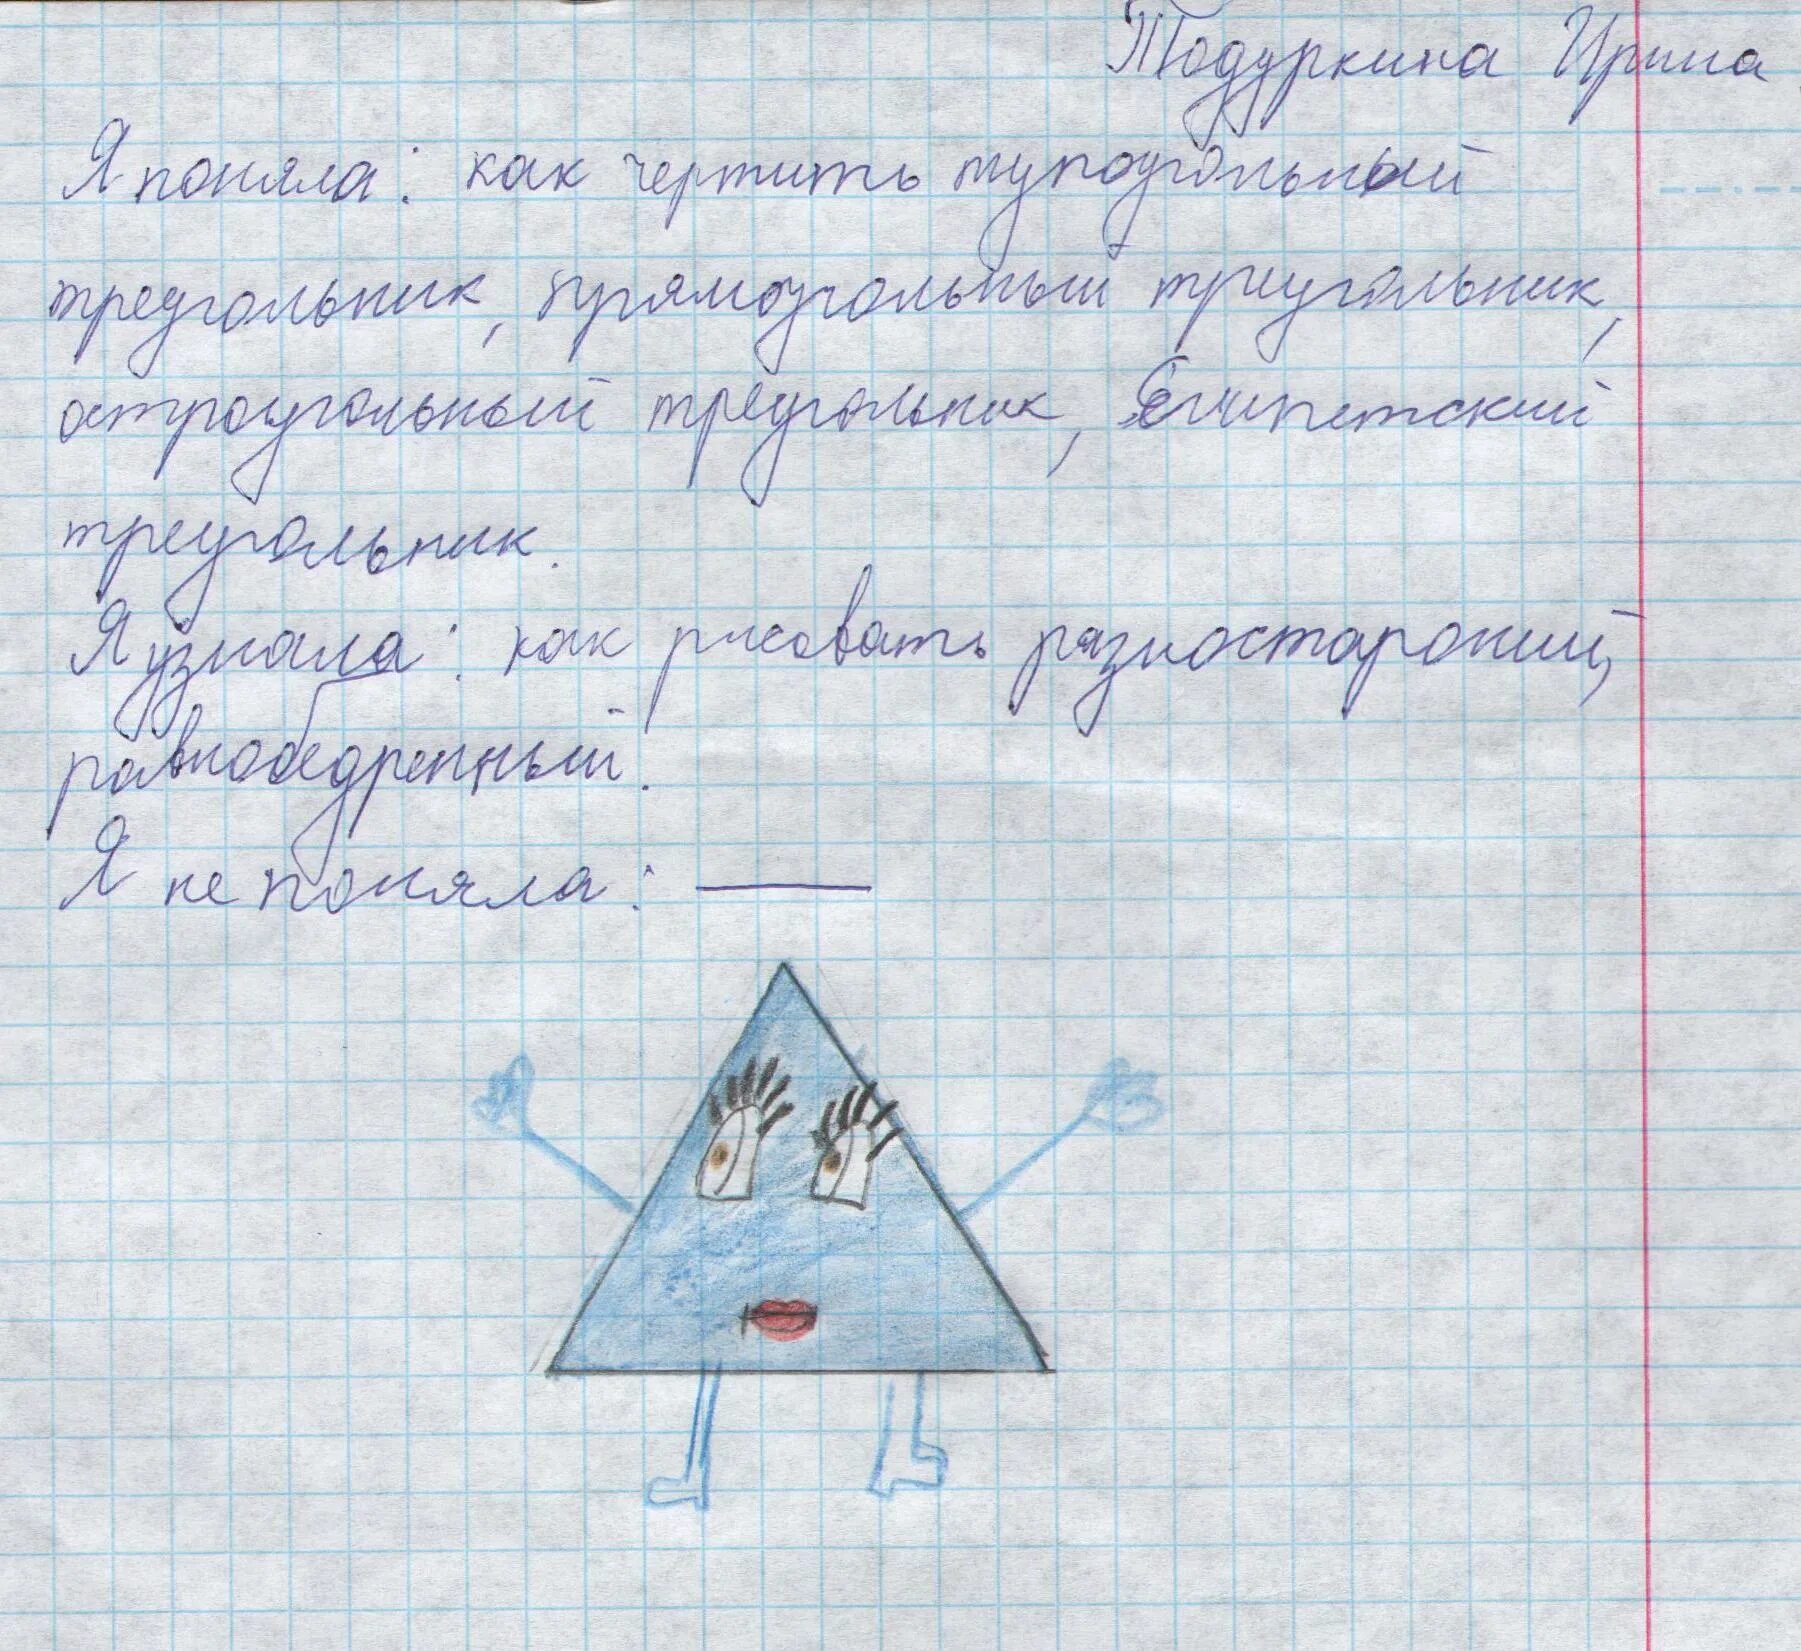 Тодуркина Ирина
Я поняла: как чертить тупоугольный
треугольник, прямоугольный триугольник,
остроугольный треугольник, Египетский
треугольник.
Я узнала: как рисовать разностароний,
равнобедренный.
Я не поняла: —